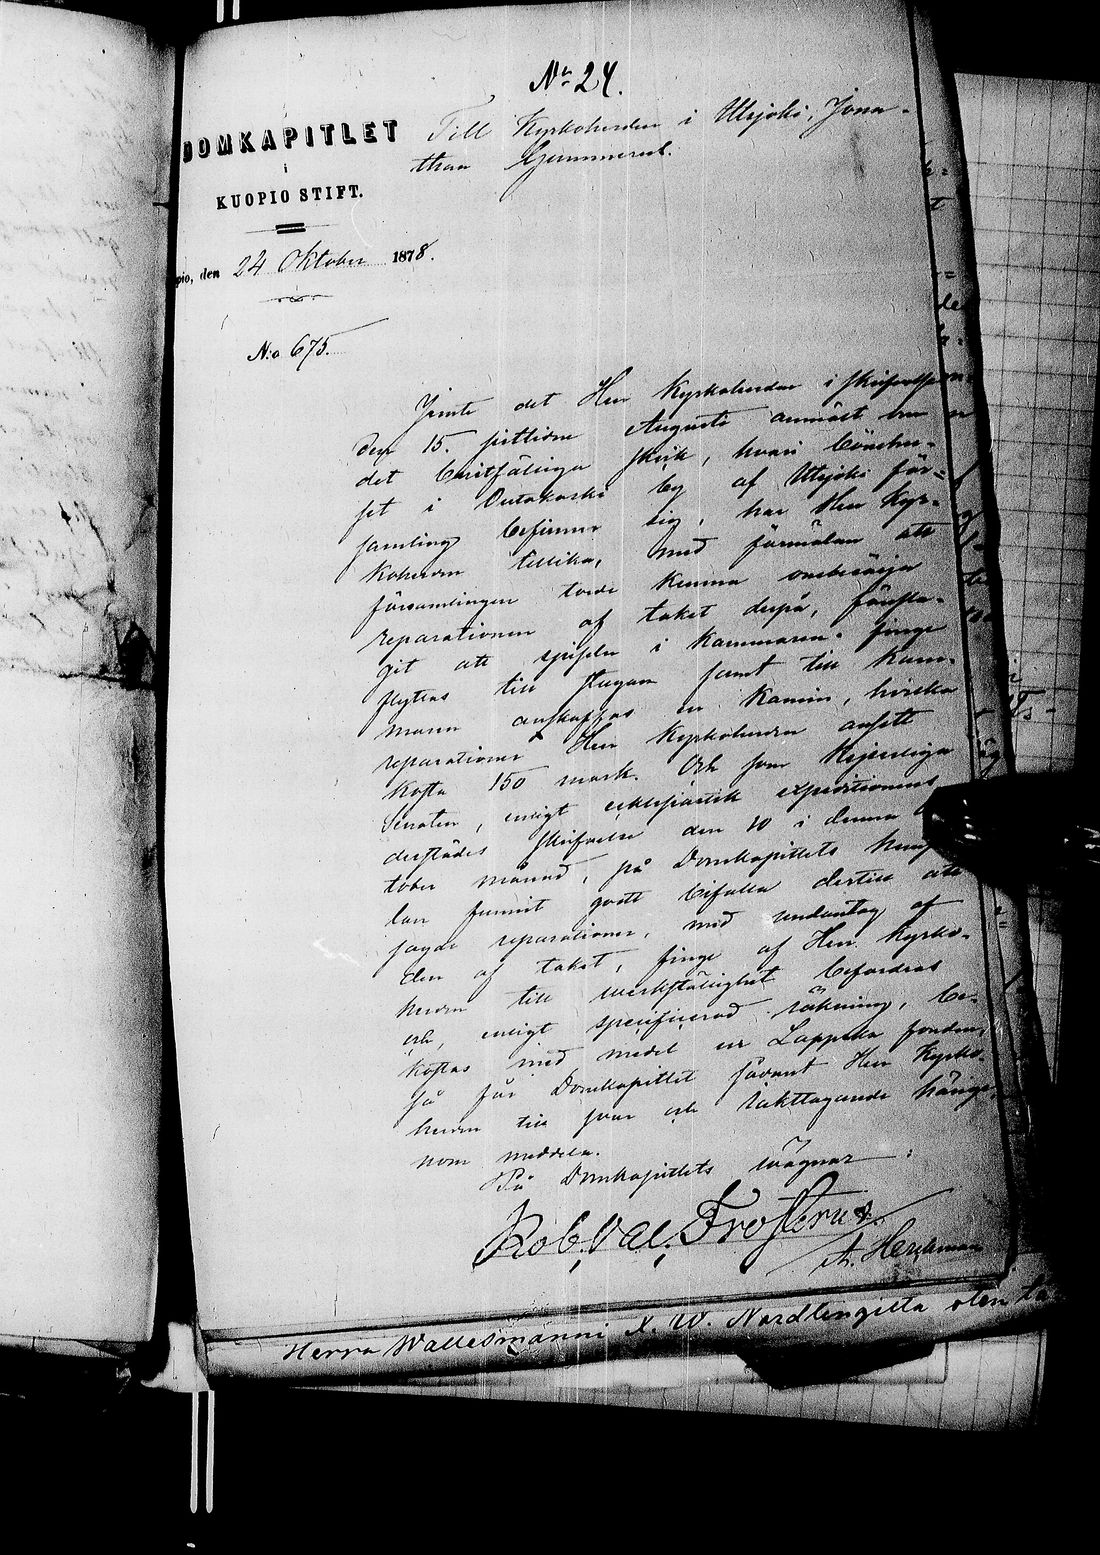 No 24.
DOMKAPITLET
i
KUOPIO STIFT.
pio, den 24 Oktober 1878.
N:o 675.
Till Kyrkoherden i Utsjoki, Jona-
than Hjemmerus.
Jemte det Herr Kyrkoherden i skrifvelse
den 15 sistlidne Augusti anmält om
det bristfälliga skick, hvari bönehu-
set i Outakoski by af Utsjoki för-
samling befinner sig, har Herr Kyr-
koherden tillika, med förmälan att
församlingen torde kunna ombesörja
reparationen af taket derpå, föresla-
git att spiseln i kammaren finge
flyttas till stugan samt till kam-
maren anskaffas en kamin, hvilka
reparationer Herr Kyrkoherden ansett
kosta 150 mark. Och som Kejserliga
Senaten, enligt ecklesiastik expeditionens
derstädes skrifvelse den 10 i denna
tober månad, på Domkapitlets hemstäl
lan funnit godt bifalla dertill att
sagde reparationer, med undantag af
den af taket, finge af Herr Kyrko-
herden till werkställighet befordras
och, enligt specificerad räkning, be-
kostas med medel ur Lappska fonden,
så får Domkapitlet sådant Herr Kyrko-
herden till svar och iakttagande härige-
nom meddela.
På Domkapitlets wägnar:
Rob. Val. Frosterus.
Herra Wallesmanni A. W. Nordlengilta olen